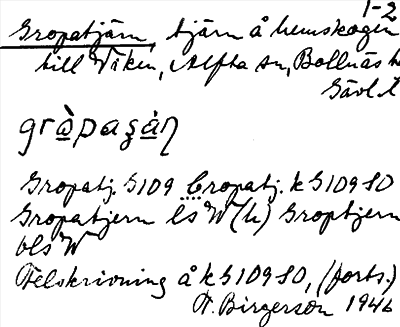 1-2
Gropatjärn, tjärn å hemskogen
till Viken, Alfta sn, Bollnäs h
Gävl. l
gròpaʂàṇ
Gropatj. G109 Cropatj. k G109 SO
Gropatjern ls W (h) Groptjern
bls W
Felskrivning å k G109 SO, (forts.)
F. Birgerson 1946